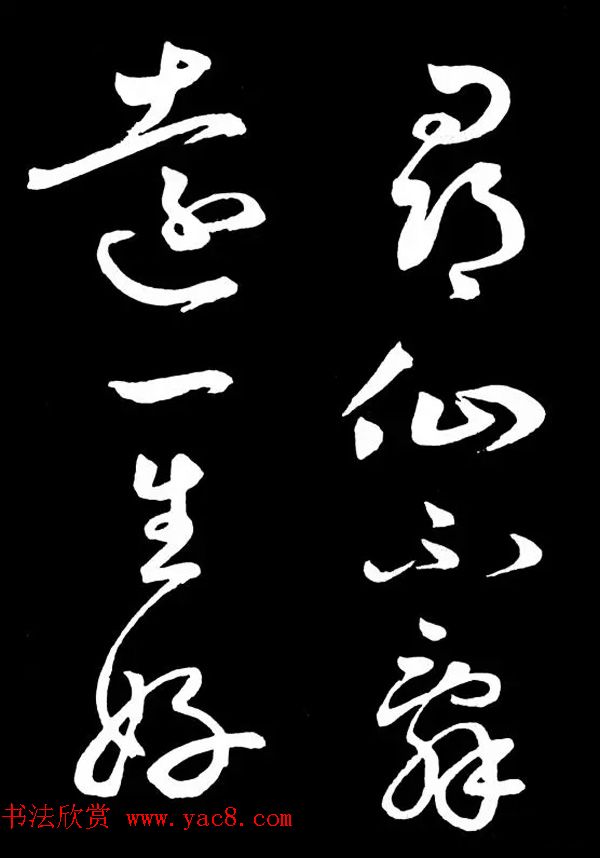 尋仙不辭
遠一生好
书法欣赏 www.yac8.com